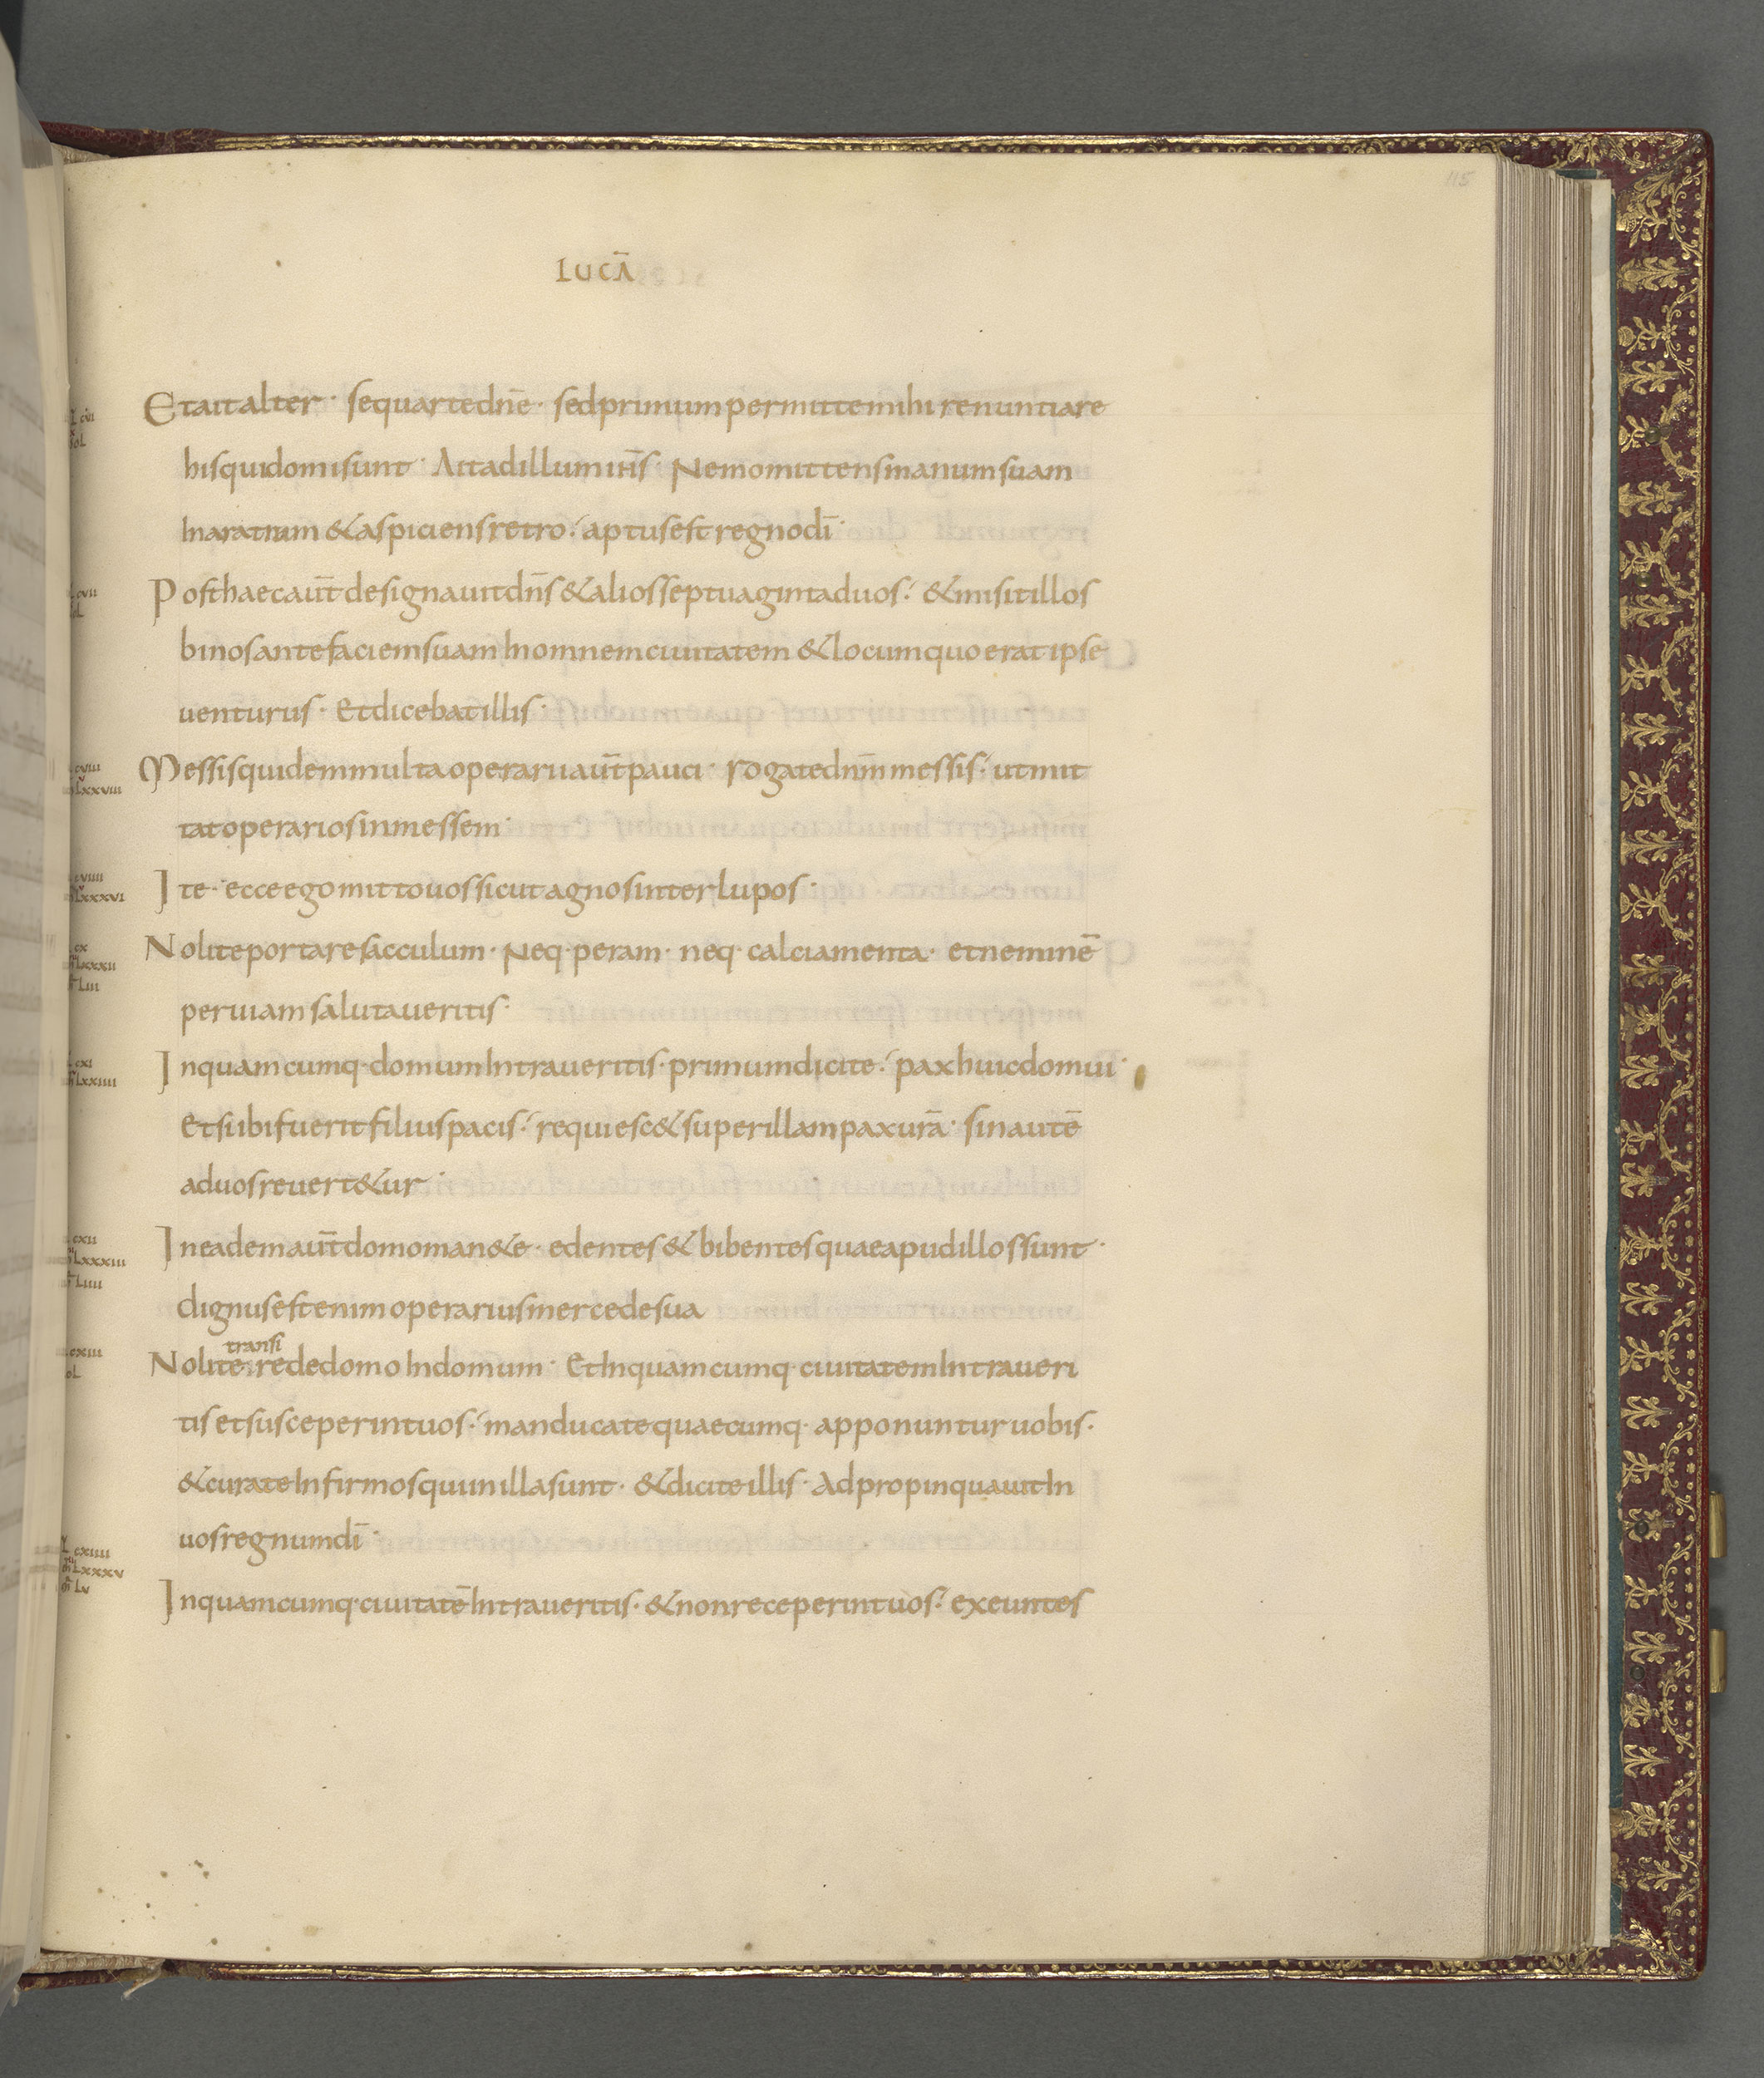 115
LUCĀ
Et ait alter · sequar te dn̄e · sed primum permitte mihi renuntiare
his qui domi sunt · Ait ad illum ih̄s · Nemo mittens manum suam
In aratrum & aspiciens retro · aptus est regno dī ·
Post haec aūt designauit dn̄s & alios septuaginta duos · & misit illos
binos ante faciem suam In omnem ciuitatem & locum quo erat ipse
uenturus · Et dicebat illis ·
Messis quidem multa operarii aūt pauci · rogate dn̄m messis · ut mit
tat operarios in messem ·
Ite · ecce ego mitto uos sicut agnos inter lupos ·
Nolite portare sacculum · Neq · peram · neq · calciamenta · et neminē
per uiam salutaueritis ·
In quamcumq · domum Intraueritis · primum dicite · pax huic domui ·
Et si ibi fuerit filius pacis · requiesc& super illam pax urā · sin autē
ad uos reuert&ur ·
In eadem aūt domo man&e · edentes & bibentes quae apud illos sunt ·
dignus est enim operarius mercede sua
transi
Nolite re de domo In domum · Et In quamcumq · ciuitatem Intraueri
tis et susceperint uos · manducate quaecumq · apponuntur uobis ·
& curate Infirmos qui in illa sunt · & dicite illis · Adpropinquauit In
uos regnum dī ·
In quamcumq · ciuitatē Intraueritis · & non receperint uos · exeuntes